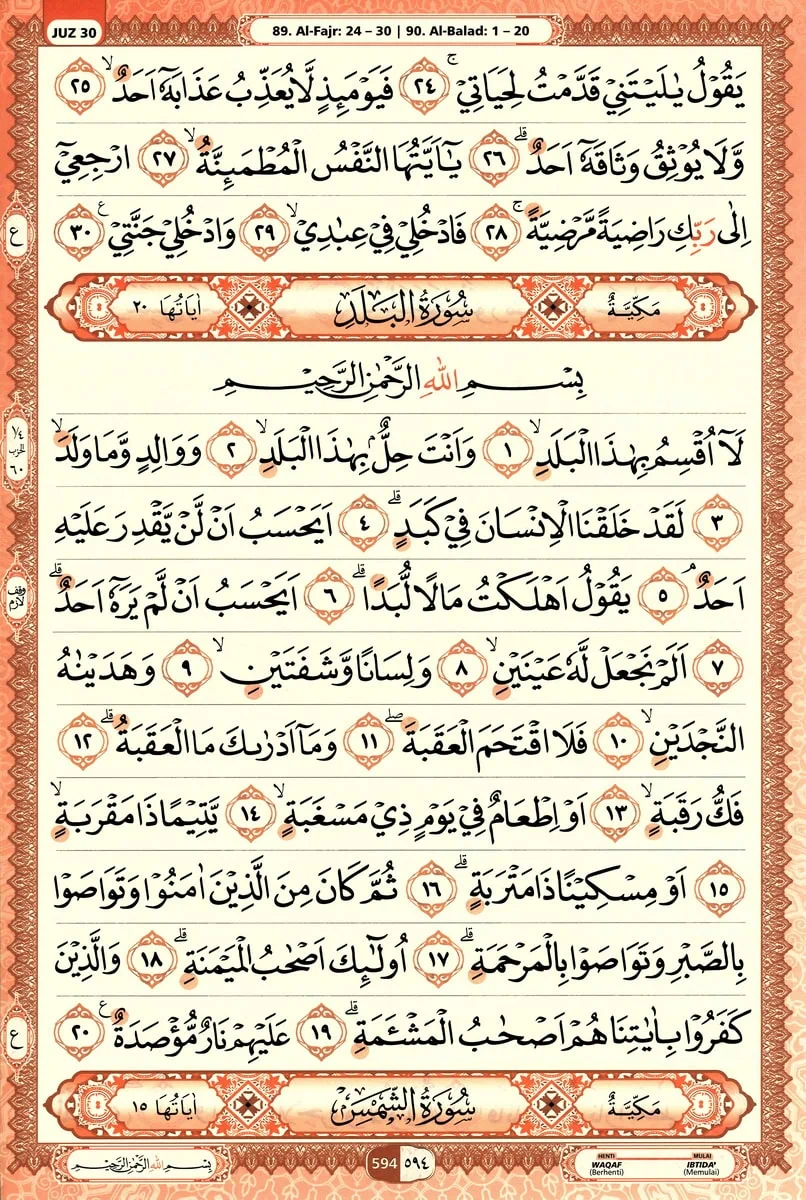 JUZ 30
89. Al-Fajr: 24 – 30 | 90. Al-Balad: 1 – 20
يَقُوْلُ يٰلَيْتَنِيْ قَدَّمْتُ لِحَيَاتِيْۚ ٢٤ فَيَوْمَىِٕذٍ لَّا يُعَذِّبُ عَذَابَهٗٓ اَحَدٌۙ ٢٥
وَّلَا يُوْثِقُ وَثَاقَهٗٓ اَحَدٌۗ ٢٦ يٰٓاَيَّتُهَا النَّفْسُ الْمُطْمَىِٕنَّةُۙ ٢٧ ارْجِعِيْٓ
اِلٰى رَبِّكِ رَاضِيَةً مَّرْضِيَّةًۚ ٢٨ فَادْخُلِيْ فِيْ عِبٰدِيْۙ ٢٩ وَادْخُلِيْ جَنَّتِيْࣖ ٣٠
ع
مَكِّيَّةٌ سُوْرَةُ الْبَلَدِ اٰيَاتُهَا ٢٠
بِسْمِ اللّٰهِ الرَّحْمٰنِ الرَّحِيْمِ
لَآ اُقْسِمُ بِهٰذَا الْبَلَدِۙ ١ وَاَنْتَ حِلٌّۢ بِهٰذَا الْبَلَدِۙ ٢ وَوَالِدٍ وَّمَا وَلَدَۙ
١/٤ الحزب ٦٠
٣ لَقَدْ خَلَقْنَا الْاِنْسَانَ فِيْ كَبَدٍۗ ٤ اَيَحْسَبُ اَنْ لَّنْ يَّقْدِرَ عَلَيْهِ
اَحَدٌۘ ٥ يَقُوْلُ اَهْلَكْتُ مَالًا لُّبَدًاۗ ٦ اَيَحْسَبُ اَنْ لَّمْ يَرَهٗٓ اَحَدٌۗ
وقف لازم
٧ اَلَمْ نَجْعَلْ لَّهٗ عَيْنَيْنِۙ ٨ وَلِسَانًا وَّشَفَتَيْنِۙ ٩ وَهَدَيْنٰهُ
النَّجْدَيْنِۙ ١٠ فَلَا اقْتَحَمَ الْعَقَبَةَۖ ١١ وَمَآ اَدْرٰىكَ مَا الْعَقَبَةُۗ ١٢
فَكُّ رَقَبَةٍۙ ١٣ اَوْ اِطْعَامٌ فِيْ يَوْمٍ ذِيْ مَسْغَبَةٍۙ ١٤ يَّتِيْمًا ذَا مَقْرَبَةٍۙ
١٥ اَوْ مِسْكِيْنًا ذَا مَتْرَبَةٍۗ ١٦ ثُمَّ كَانَ مِنَ الَّذِيْنَ اٰمَنُوْا وَتَوَاصَوْا
بِالصَّبْرِ وَتَوَاصَوْا بِالْمَرْحَمَةِۗ ١٧ اُولٰۤىِٕكَ اَصْحٰبُ الْمَيْمَنَةِۗ ١٨ وَالَّذِيْنَ
كَفَرُوْا بِاٰيٰتِنَا هُمْ اَصْحٰبُ الْمَشْـَٔمَةِۗ ١٩ عَلَيْهِمْ نَارٌ مُّؤْصَدَةٌࣖ ٢٠
ع
مَكِّيَّةٌ سُوْرَةُ الشَّمْسِ اٰيَاتُهَا ١٥
بِسْمِ اللّٰهِ الرَّحْمٰنِ الرَّحِيْمِ
594 ٥٩٤
HENTI WAQAF (Berhenti)
MULAI IBTIDA' (Memulai)